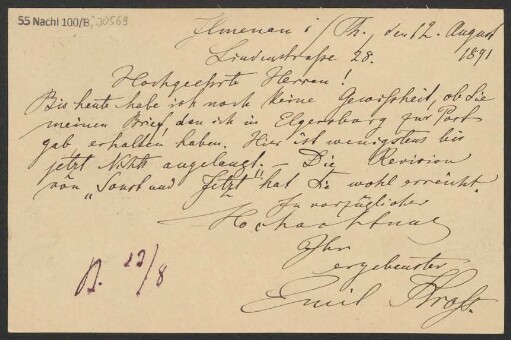 55 Nachl 100/B, 30569
Ilmenau i/Th., den 12. August
Lindenstraße 28. 1891
Hochgeehrte Herren!
Bis heute habe ich noch keine Gewißheit, ob Sie
meinen Brief, den ich in Elgersburg zur Post
gab, erhalten haben. Hier ist wenigstens bis
jetzt Nichts angelangt. – Die Revision
von „Sonst und Jetzt" hat Sie wohl erreicht.
In vorzüglicher
Hochachtung
Ihr
ergebenster
Emil
B. 13/8